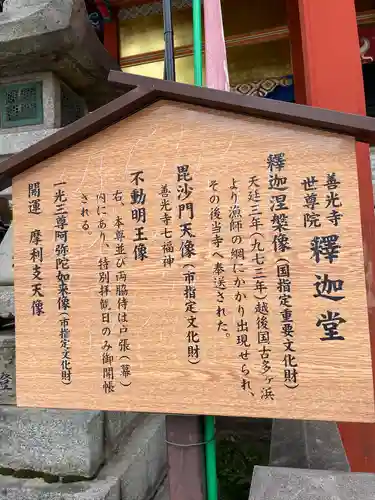 善光寺
世尊院
釋迦堂
釋迦涅槃像(国指定重要文化財)
天延三年(九七三年)越後国古多ヶ浜
より漁師の網にかかり出現せられ、
その後当寺へ奉送された。
毘沙門天像(市指定文化財)
善光寺七福神
不動明王像
右、本尊並び両脇侍は戸張(幕)
内にあり、特別拝観日のみ御開帳
される。
一光三尊阿弥陀如来像(市指定文化財)
開運 摩利支天像